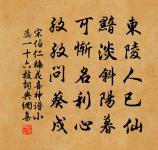 東陵人已仙
黯淡斜陽暮
可慚名利心
孜孜問葵戍
宋伯仁梅花喜神譜小
蕊一十六枝詞典網集